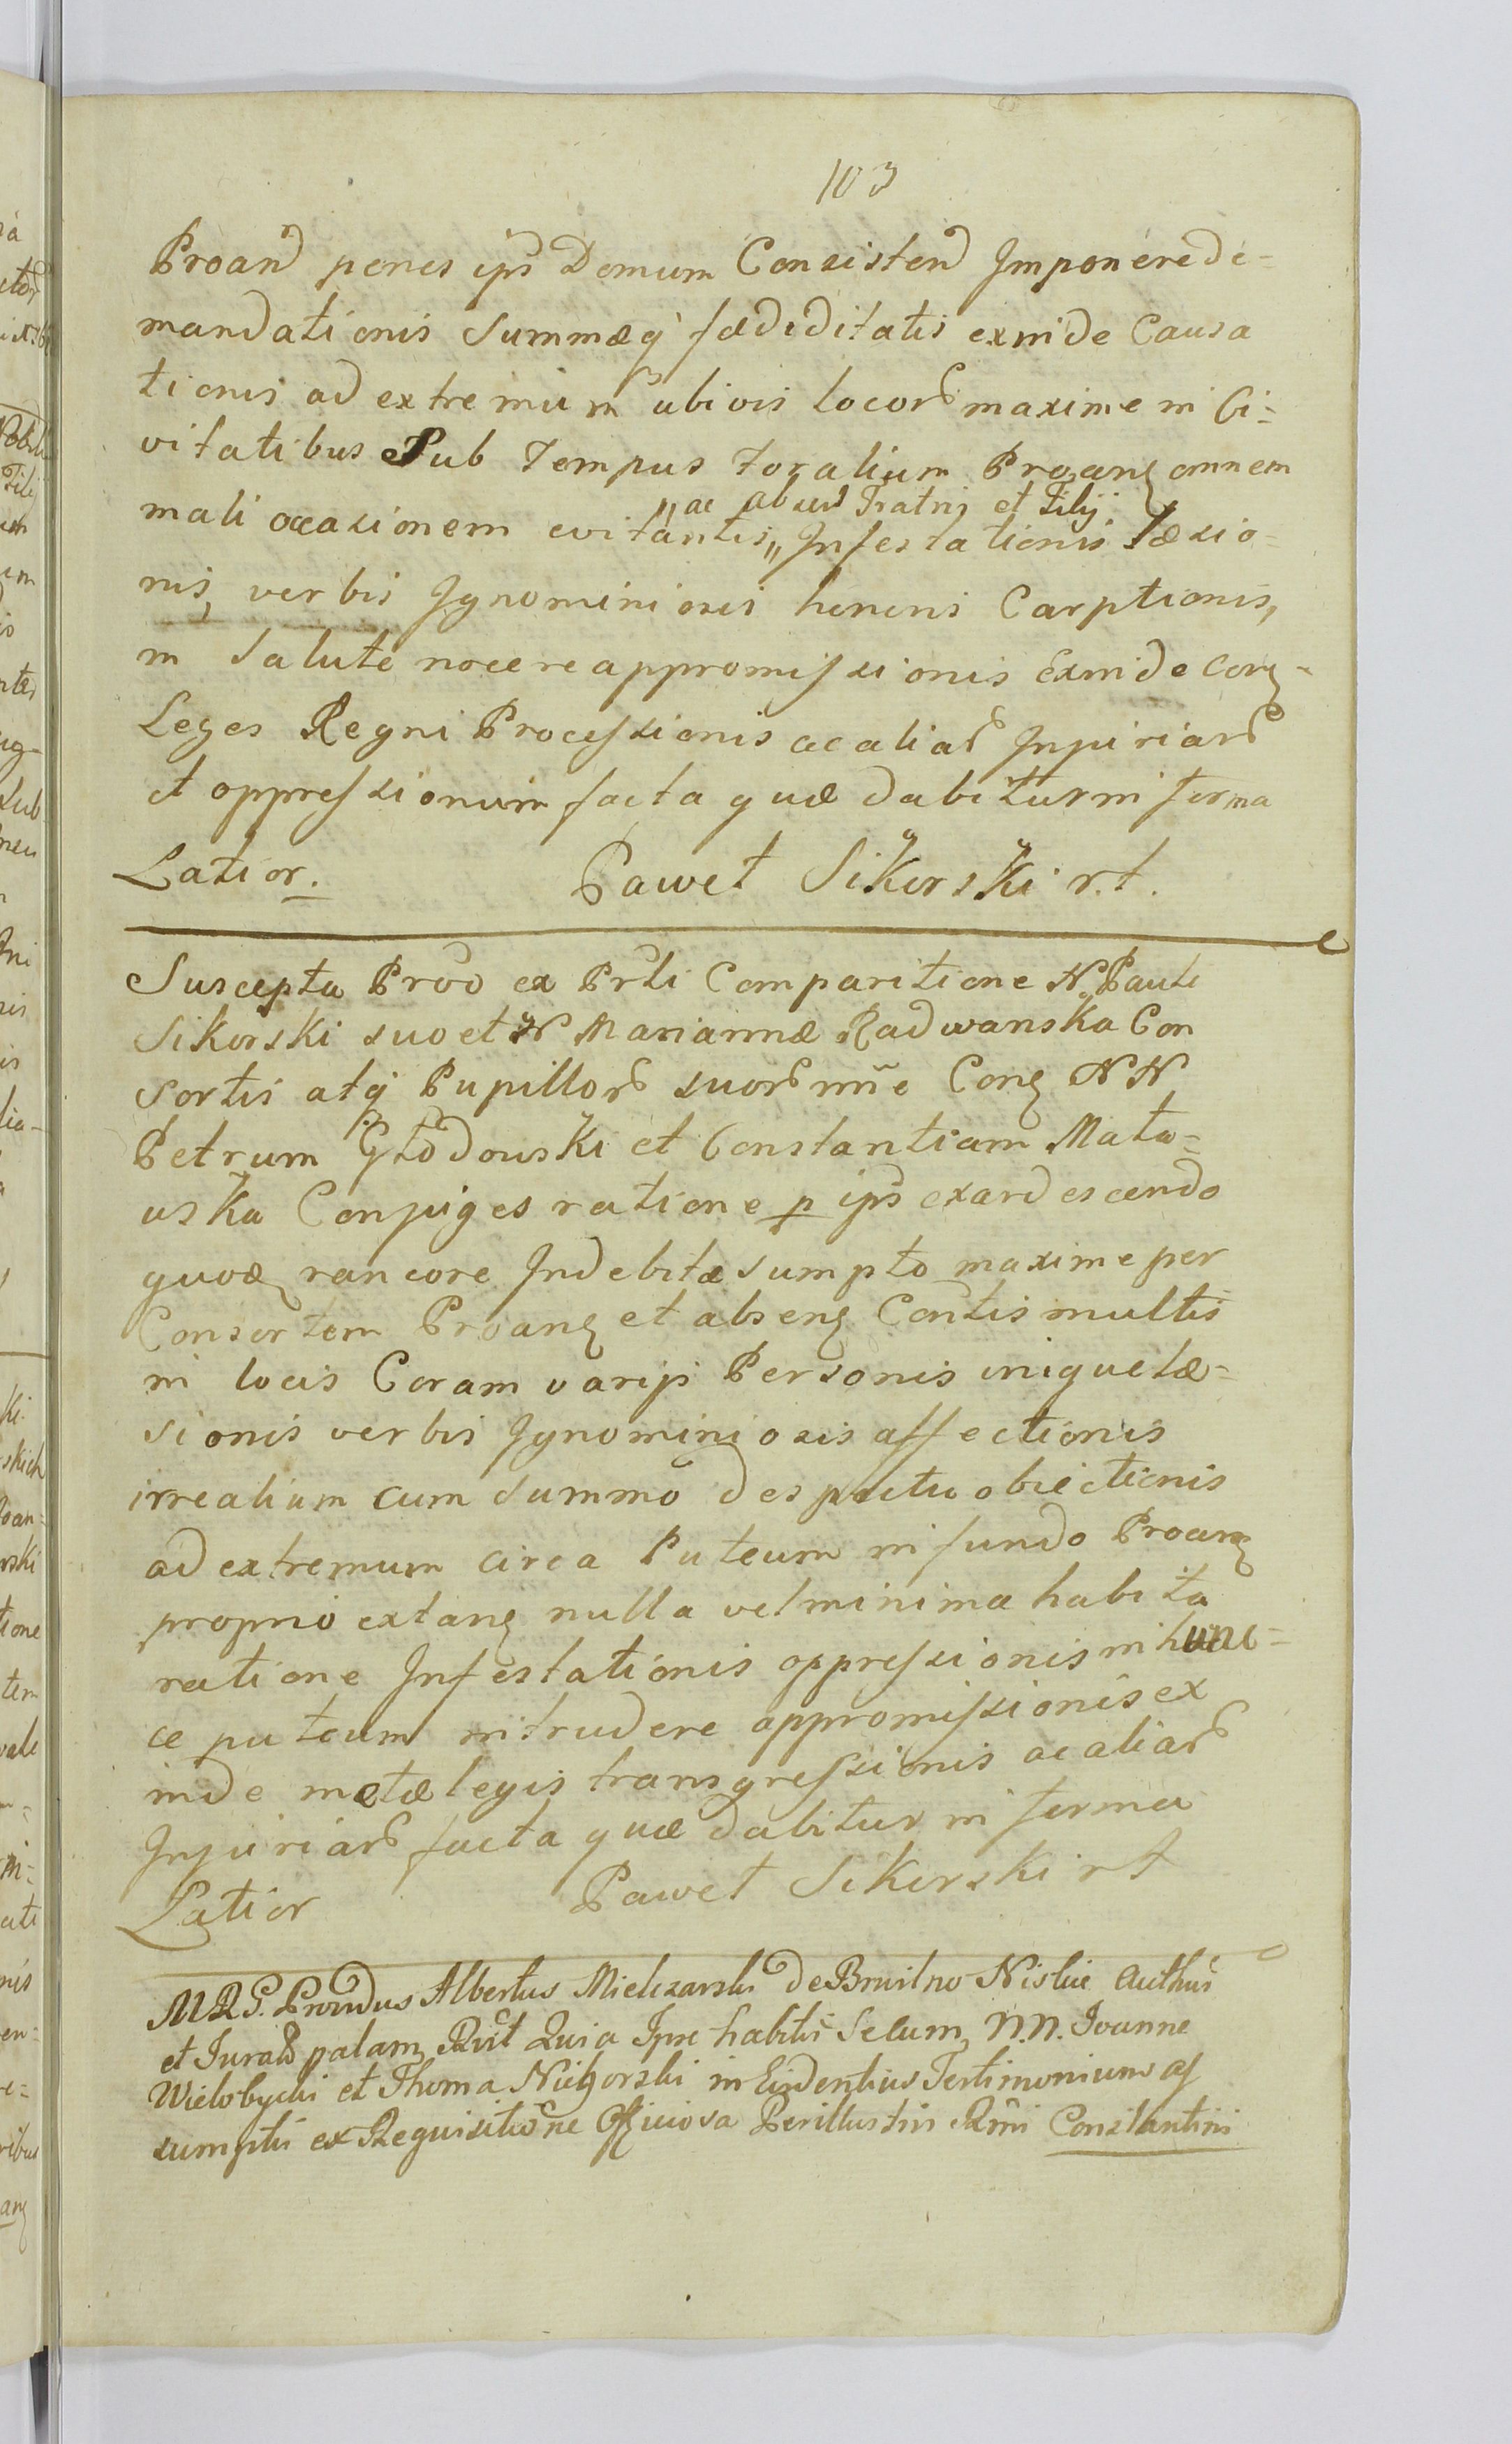 103
Proand penes ips Domum Consistend Imponere de=
mandationis Summæq fædiditatis exinde Causa
tionis ad extremum ubivis locor maxime in Ci=
vitatibus Sub tempus foralium Proanz omnem
"ac absen Fratris et Filij
mali occasionem evitantis" Infestationis læsio=
nis, verbis Ignominiosis honoris Carptionis,
in Salute nocere appromissionis Exinde conz=
Leges Regni Processionis ac aliar Injuriar
et oppressionum facta quæ dabitur in forma
Latior. Paweł Sikorski r.t.
Suscepta Prōo ex Prli Comparitione N. Pauli
Sikorski suo et N Mariannæ Radwanska Con
sortis atq Pupillor suor nñe Conz NN
Petrum Głodowski et Constantiam Mała=
uska Conjuges ratione p ips exardescendo
quoz rancore Indebitæ sumpto maxime per
Consortem Proanz et absenz Contis multis
in locis Coram varijs Personis inique læ=
sionis verbis Ignominiosis affectionis
irrealium cum summo despectu obiectionis
ad extremum circa Puteum in fundo Proanz
proprio extanz nulla vel minima habita
ratione Infestationis oppressionis in hunc=
ce puteum intrudere appromissionis ex
inde metæ legis transgressionis ac aliar
Injuriar facta quæ dabitur in forma
Latior Paweł Sikorski rt
MRG. Providus Albertus Mielczarski de Brwilno Nislie Authus
et Jurat palam Rūt Quia Ipse habitis Secum N.N. Joanne
Wielobycki et Thoma Niegorski in Evidentius Testimonium as
sumptis ex Requisitione Officiosa Perillustris Rmi Constantini